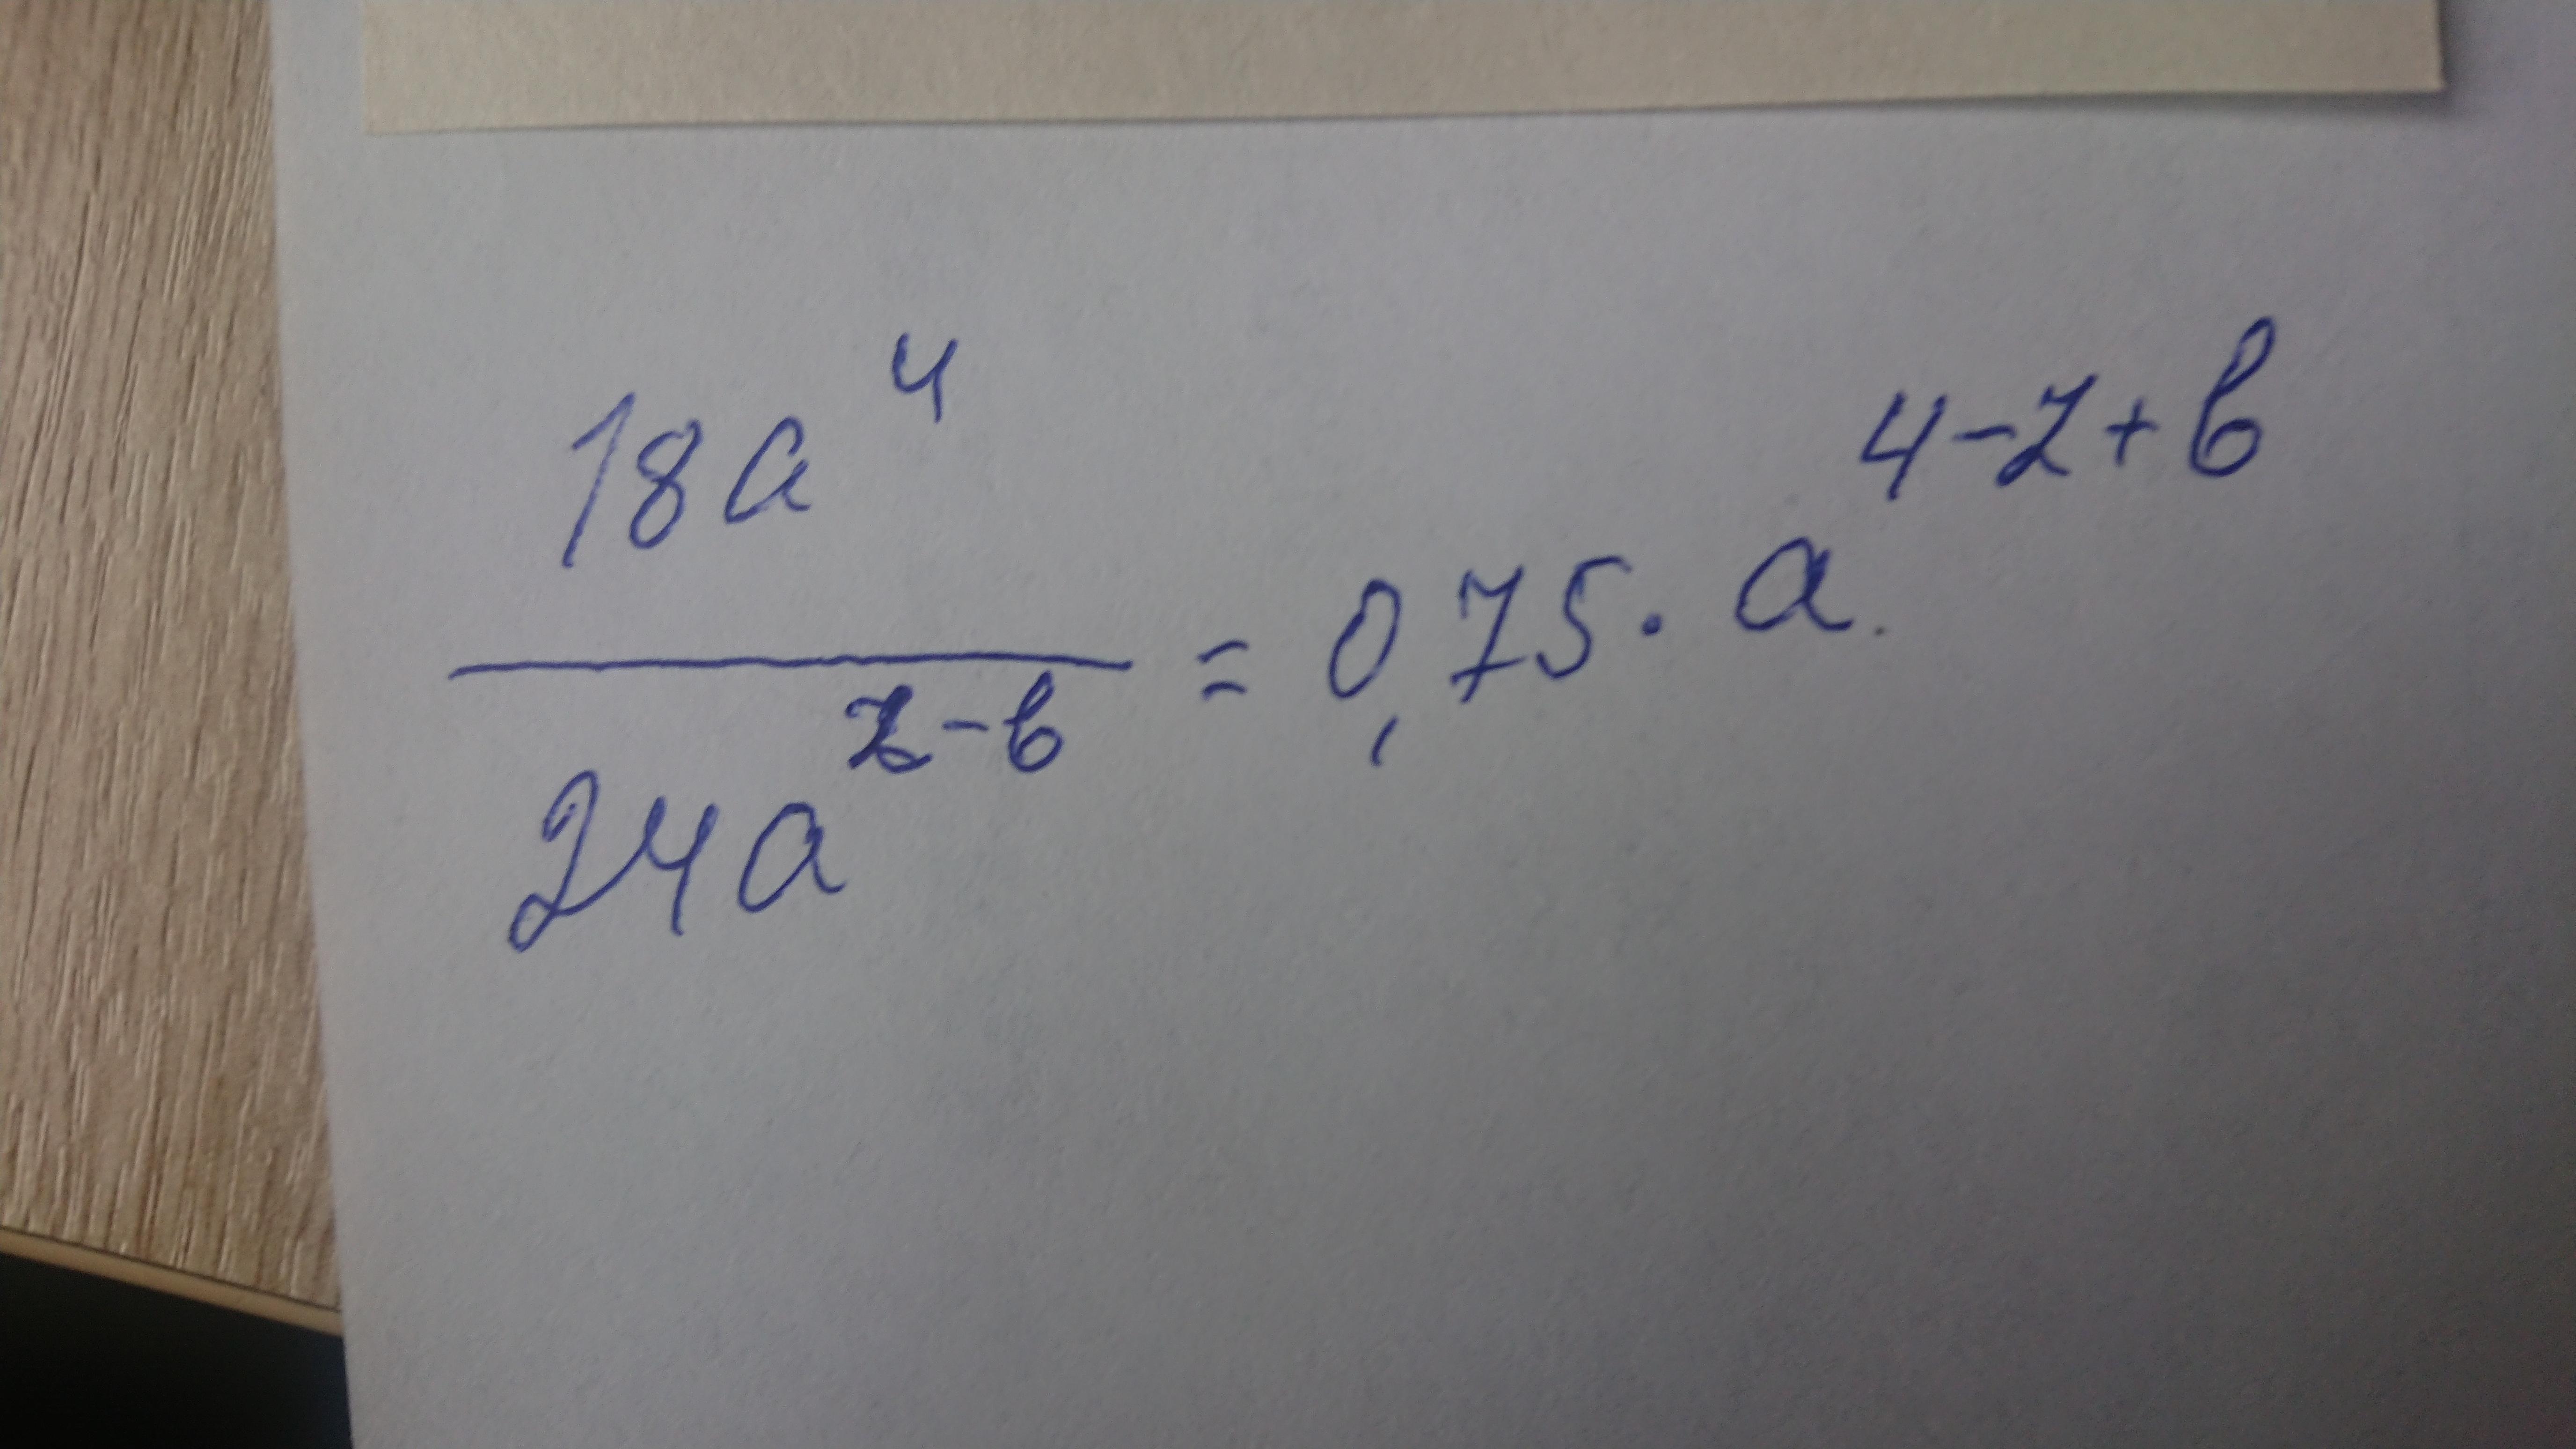 18a⁴ / 24a^(z-b) = 0,75 · a^(4-z+b)